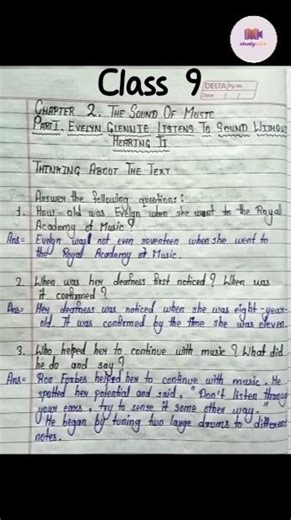 Class 9
DELTA Pg No.
Date / /
CHAPTER 2. THE SOUND OF MUSIC
PART I. EVELYN GLENNIE LISTENS TO SOUND WITHOUT
HEARING IT
THINKING ABOUT THE TEXT
Answer the following questions:
1. How old was Evelyn when she went to the Royal
Academy of Music?
Ans= Evelyn was not even seventeen when she went to
the Royal Academy of Music.
2. When was her deafness first noticed? When was
it confirmed?
Ans= Her deafness was noticed when she was eight-year-
old. It was confirmed by the time she was eleven.
3. Who helped her to continue with music? What did
he do and say?
Ans= Ron Forbes helped her to continue with music. He
spotted her potential and said, "Don't listen through
your ears, try to sense it some other way."
He began by tuning two large drums to different
notes.